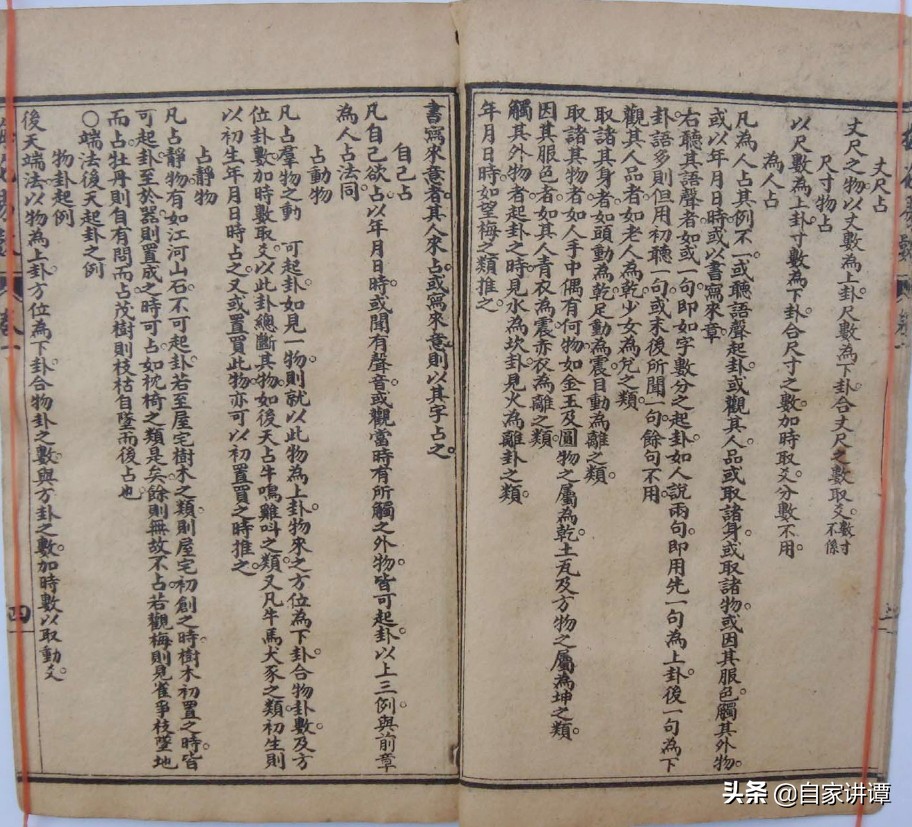 丈尺占
丈尺之物以丈數為上卦尺數為下卦合丈尺之數取爻數寸不係
尺寸物占
以尺數為上卦寸數為下卦合尺寸之數加時取爻分數不用
為人占
凡為人占其例不一或聽語聲起卦或觀其人品或取諸身或取諸物或因其服色觸其外物
或以年月日時或以書寫來意
右聽其語聲者如或一句即如字數分之起卦如人說兩句即用先一句為上卦後一句為下
卦語多則但用初聽一句或末後所聞一句餘句不用
觀其人品者如老人為乾少女為兌之類
取諸其身者如頭動為乾足動為震目動為離之類
取諸其物者如人手中偶有何物如金玉及圓物之屬為乾土瓦及方物之屬為坤之類
因其服色者如其人青衣為震赤衣為離之類
觸其外物者起卦之時見水為坎卦見火為離卦之類
年月日時如望梅之類推之
書寫來意者其人來占或寫來意則以其字占之
自己占
凡自己欲占以年月日時或聞有聲音或觀當時有所觸之外物皆可起卦以上三例與前章
為人占法同
占動物
凡占羣物之動 可起卦如見一物則就以此物為上卦物來之方位為下卦合物卦數及方
位卦數加時數取爻以此卦總斷其物如後天占牛鳴雞叫之類又凡牛馬犬豕之類初生則
以初生年月日時占之又或置買此物亦可以初置買之時推之
占靜物
凡占靜物有如江河山石不可起卦若至屋宅樹木之類則屋宅初創之時樹木初置之時皆
可起卦至於器則置成之時可占如枕椅之類是矣餘則無故不占若觀梅則見雀爭枝墜地
而占牡丹則自有問而占茂樹則枝枯自墜而後占也
〇端法後天起卦之例
物卦起例
後天端法以物為上卦方位為下卦合物卦之數與方卦之數加時數以取動爻
四
头条 @自家讲谭